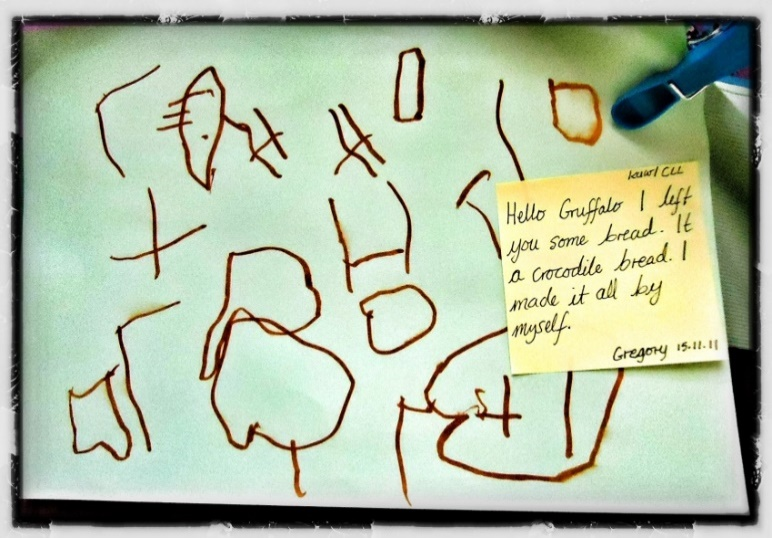 CLL
Hello Gruffalo I left
you some bread. It
a crocodile bread. I
made it all by
myself.
Gregory 15.11.11